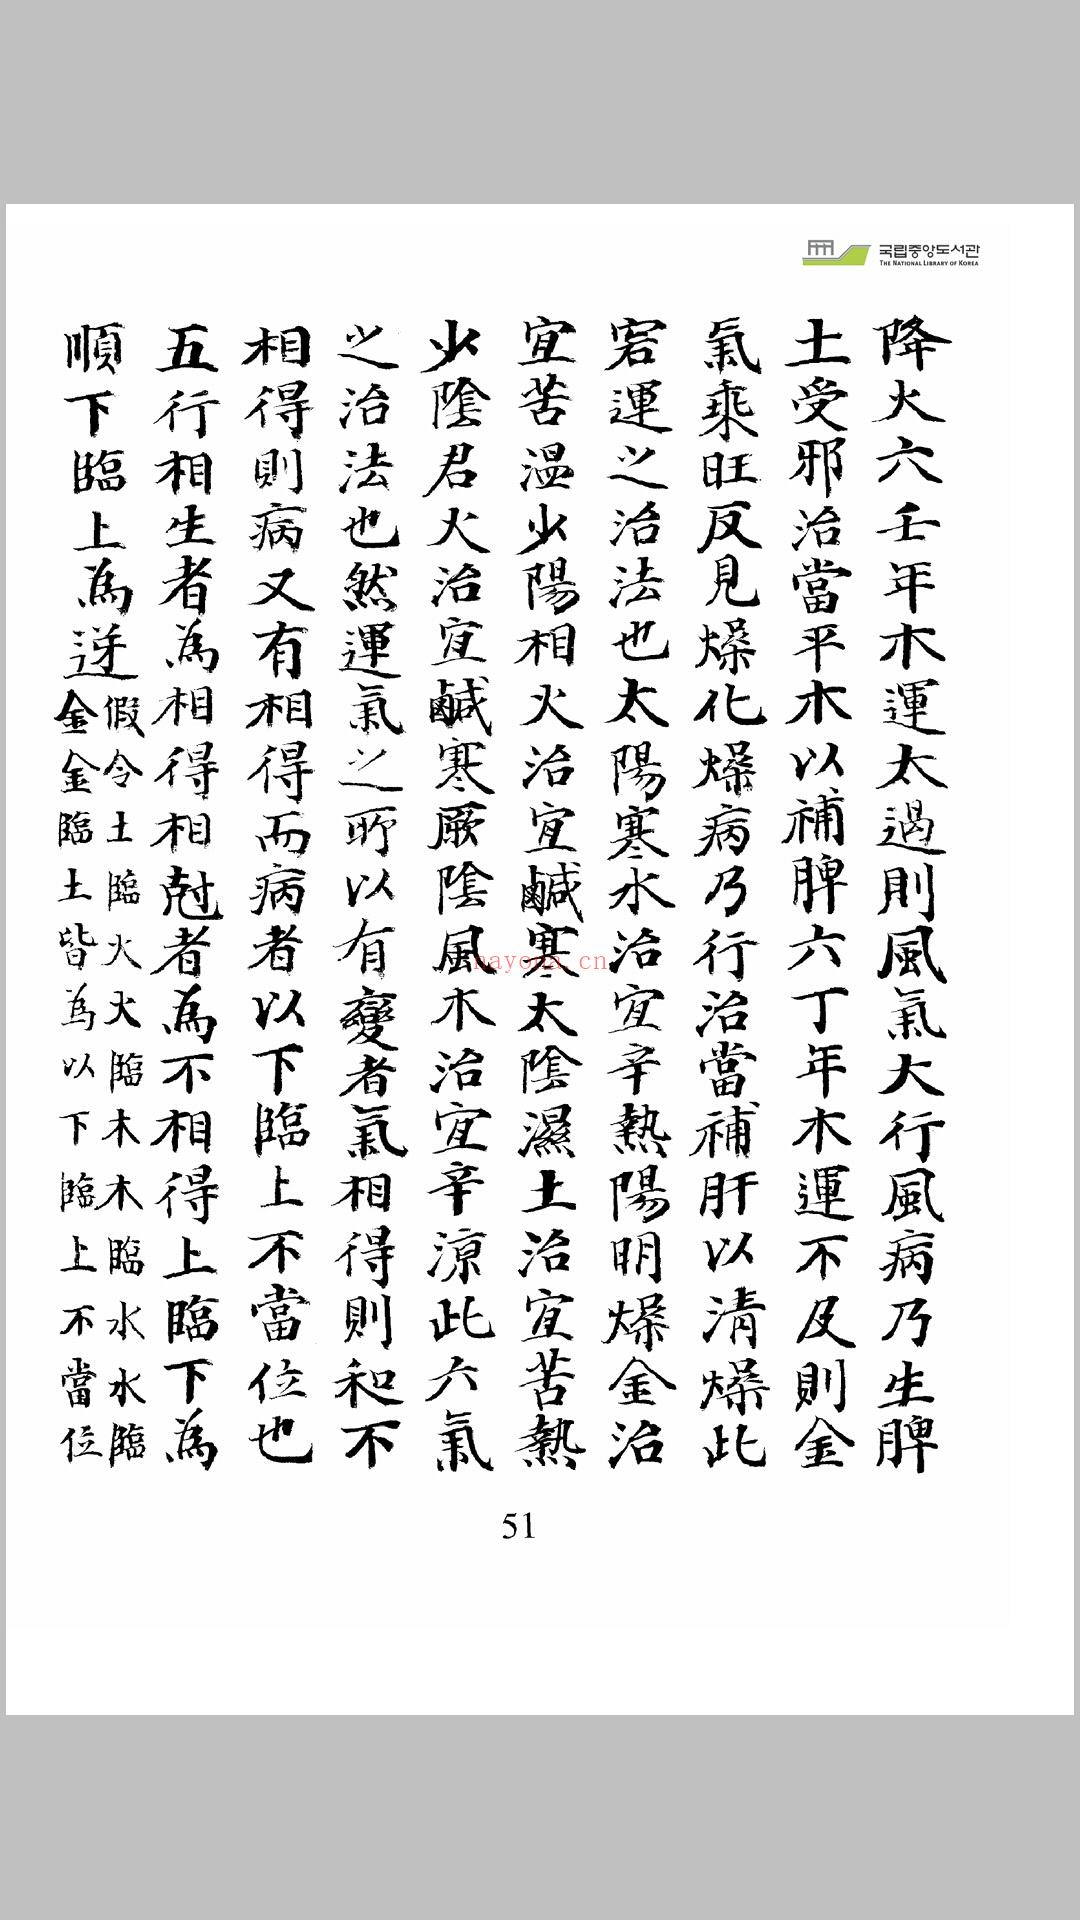 국립중앙도서관
THE NATIONAL LIBRARY OF KOREA
降火六壬年木運太過則風氣大行風病乃生脾
土受邪治當平木以補脾六丁年木運不及則金
氣乘旺反見燥化燥病乃行治當補肝以清燥此
宕運之治法也太陽寒水治宜辛熱陽明燥金治
宜苦温少陽相火治宜鹹寒太陰濕土治宜苦熱
少陰君火治宜鹹寒厥陰風木治宜辛涼此六氣
之治法也然運氣之所以有變者氣相得則和不
相得則病又有相得而病者以下臨上不當位也
五行相生者為相得相尅者為不相得上臨下為
順下臨上為逆假令土臨火火臨木木臨水水臨
金金臨土皆為以下臨上不當位
nayona.cn
51